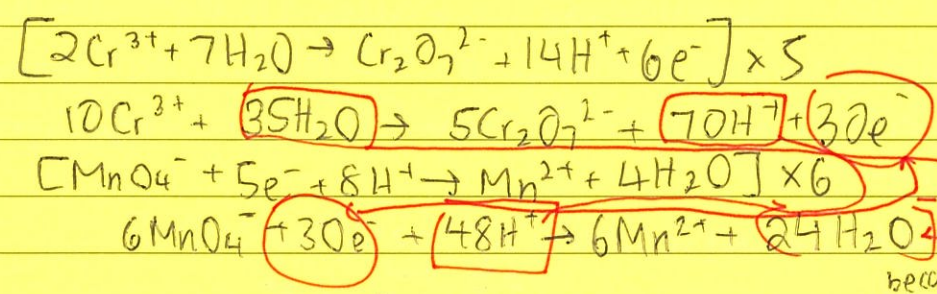 [2Cr³⁺ + 7H₂O → Cr₂O₇²⁻ + 14H⁺ + 6e⁻] x 5
10Cr³⁺ + 35H₂O → 5Cr₂O₇²⁻ + 70H⁺ + 30e⁻
[MnO₄⁻ + 5e⁻ + 8H⁺ → Mn²⁺ + 4H₂O] x 6
6MnO₄⁻ + 30e⁻ + 48H⁺ → 6Mn²⁺ + 24H₂O